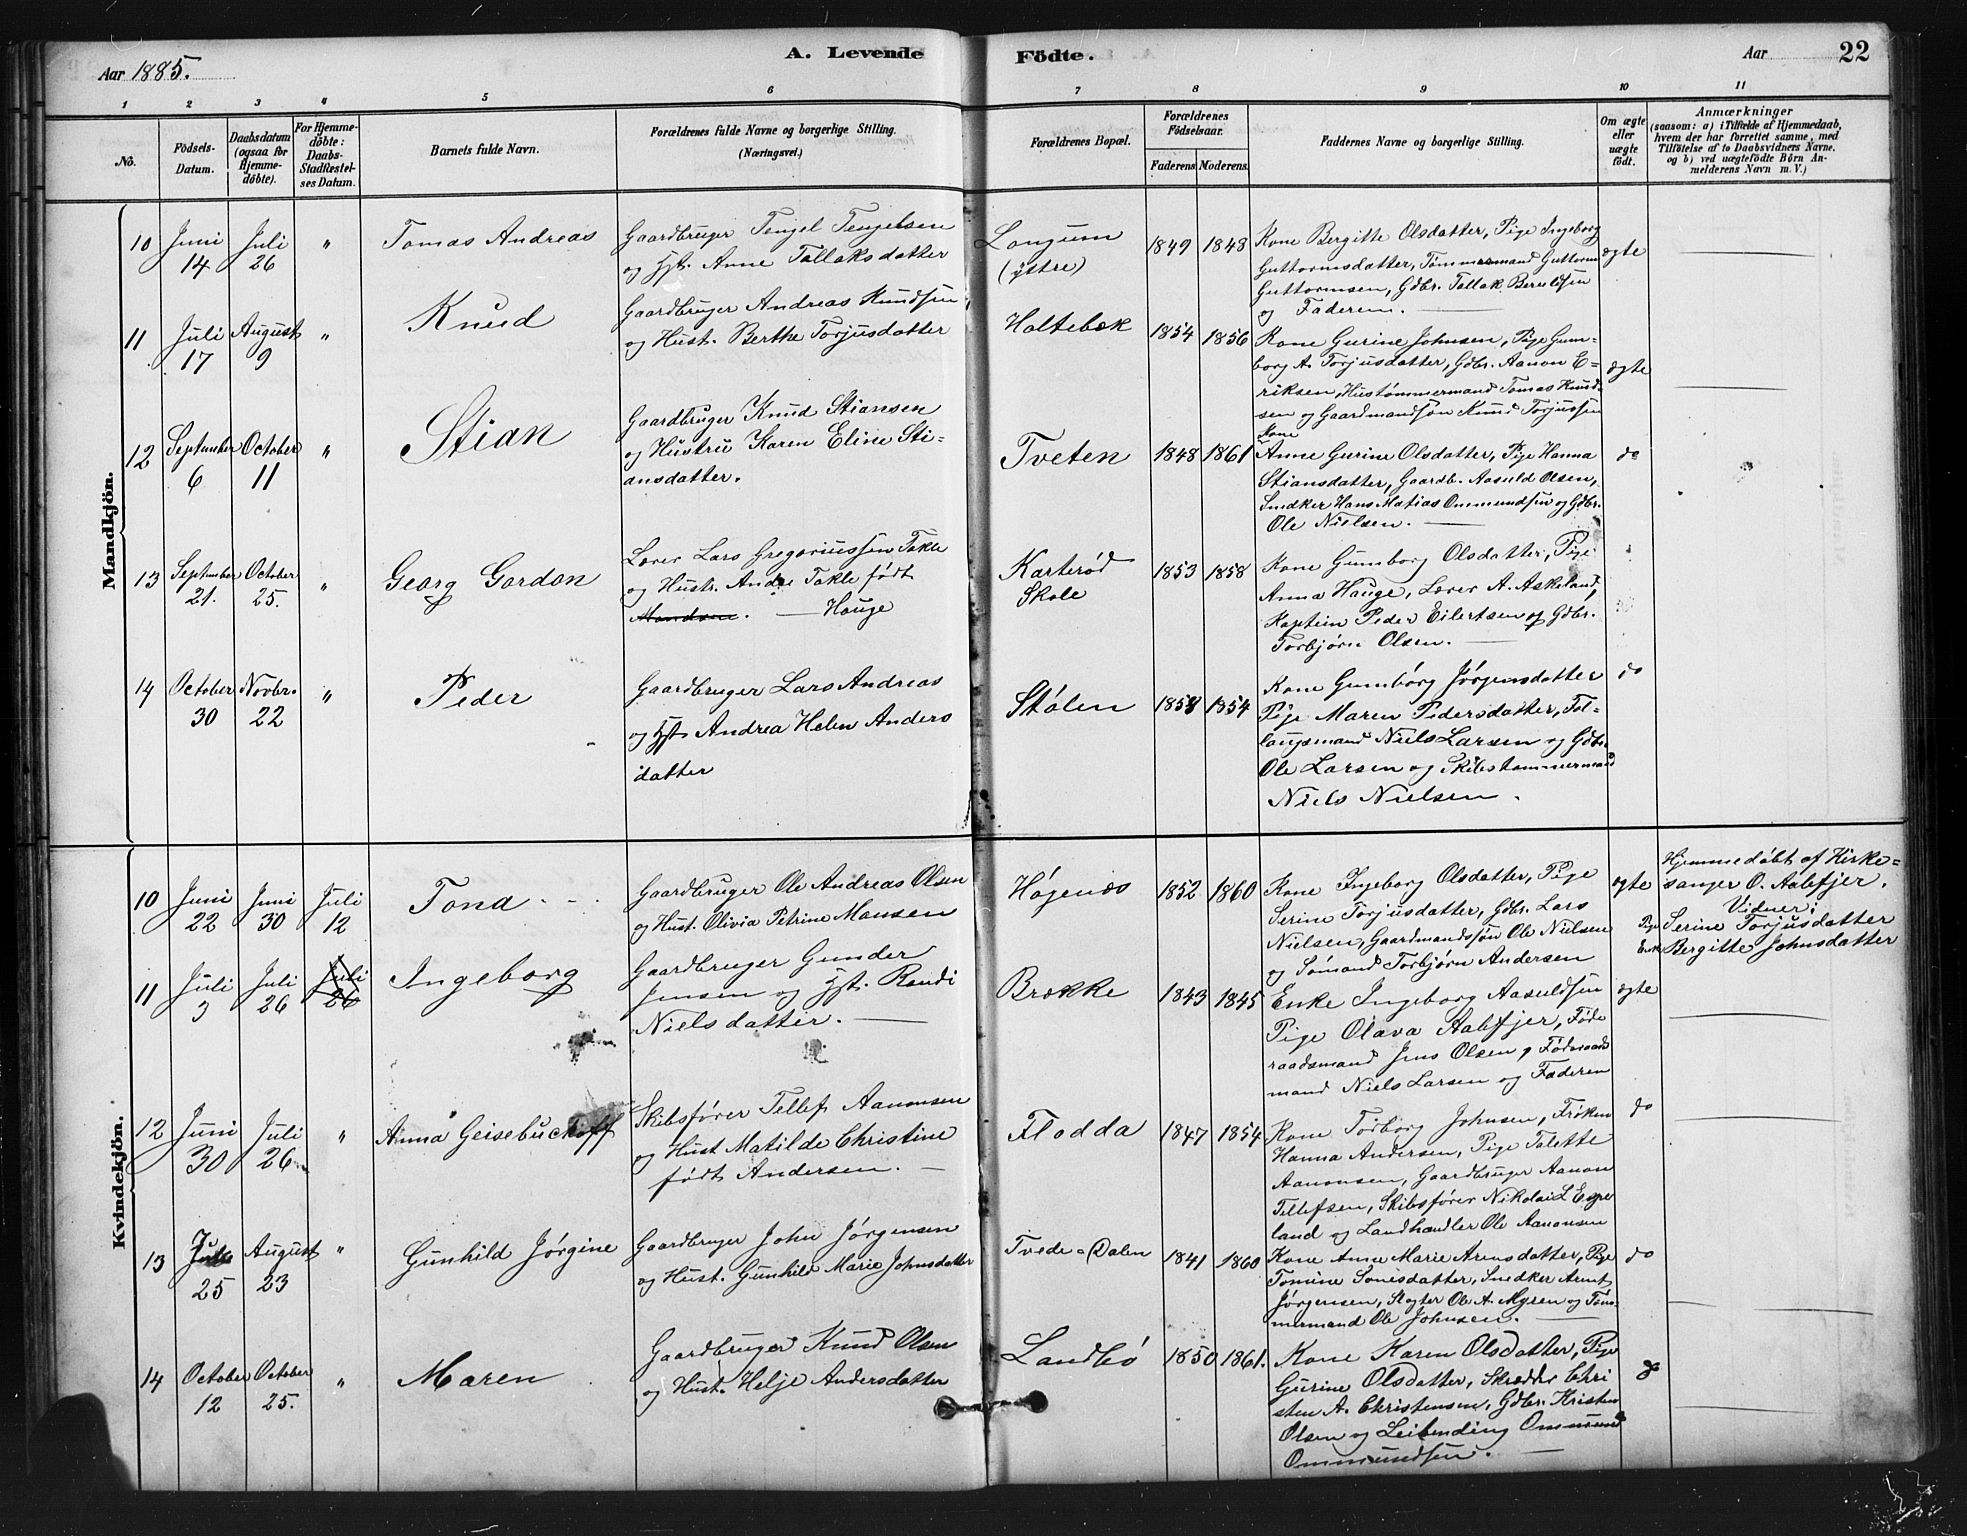 Aar 1885.
A. Levende
Födte.
Aar
22
1 2 3 4 5 6 7 8 9 10 11
No.
Födsels-
Datum.
Daabsdatum
(ogsaa for
Hjemme-
döbte).
For Hjemme-
döbte:
Daabs-
Stadfæstel-
ses Datum.
Barnets fulde Navn.
Forældrenes fulde Navne og borgerlige Stilling.
(Næringsvei.)
Forældrenes Bopæl.
Forældrenes
Födselsaar.
Faderens Moderens
Faddernes Navne og borgerlige Stilling.
Om ægte
eller
uægte
födt.
Anmærkninger
(saasom: a) i Tilfælde af Hjemmedaab,
hvem der har forrettet samme, med
Tilföielse af to Daabsvidners Navne.
og b) ved uægtefödte Börn An-
melderens Navn m. V.)
Mandkjön.
10
Juni
14
Juli
26
"
Tomas Andreas
Gaardbruger Tengel Tengelsen
og Hst. Anne Tallaksdatter
Longum
(østre)
1849 1848
Kone Bergitte Olsdatter, Pige Ingeborg
Guttormsdatter, Tømmermand Guttorm
Guttormsen, Gdbr. Tallak Berulfsen
og Faderen.
ægte
11
Juli
17
August
9
"
Knud
Gaardbruger Andreas Knudsen
og Hust. Berthe Torjusdatter
Holtebæk
1854 1856
Kone Gurine Johnsen, Pige Gun-
borg A. Torjusdatter, Gdbr. Aanon E-
riksen, Hustømmermand Tomas Knud-
sen og Gaardmandsøn Knud Torjussen
ægte
12
September
6
October
11
"
Stian
Gaardbruger Knud Stiansen
og Hustru Karen Eline Sti-
ansdatter.
Tveten
1848 1861
Kone
Anne Gurine Olsdatter, Pige Hanna
Stiansdatter, Gaardb. Aasuld Olsen,
Snedker Hans Matias Ommundsen og Gdbr.
Ole Nielsen.
do
13
September
21.
October
25.
"
Georg Gordon
Lærer Lars Gregoriussen Takle
og Hustr. Andrea Takle født
Hauge
Karterød
Skole
1853 1858
Kone Gunborg Olsdatter, Pige
Anna Hauge, Lærer A. Askeland,
Kaptein Peder Eilertsen og Gdbr.
Torbjørn Olsen.
14
October
30
Novbr.
22
"
Peder
Gaardbruger Lars Andreas
og Hst. Andrea Helen Anders
datter
Stølen
1858 1854
Kone Gunborg Jørgensdatter
Pige Maren Pedersdatter, For-
laugsmand Niels Larsen og Gdbr.
Ole Larsen og Skibstømmermand
Niels Nielsen.
do
Kvindekjön.
10
Juni
22
Juni
30
Juli
12
Tona
Gaardbruger Ole Andreas Olsen
og Hust. Olivia Petrine Monsen
Høgenæs
1852 1860
Kone Ingeborg Olsdatter, Pige
Serine Torjusdatter, Gdbr. Lars
Nielsen, Gaardmandssøn Ole Nielsen
og Sømand Torbjørn Andersen
ægte
Hjemmedøbt af Kirke-
sanger O. Aabefjer.
Vidner:
Pige Serine Torjusdatter
Enke Bergitte Johnsdatter
11
Juli
3
Juli
26
Juli
26
Ingeborg
Gaardbruger Gunder
Jensen og Hst. Randi
Nielsdatter.
Brække
1843 1845
Enke Ingeborg Aasuldsen
Pige Olava Aabefjer, Føde
raadsmand Jens Olsen, Føderaads
mand Niels Larsen og Faderen
ægte
12
Juni
30
Juli
26
"
Anna Geisebuchoff
Skibsfører Tellef Aanonsen
og Hust Matilde Christine
født Andersen.
Flodda
1847 1854
Kone Torborg Johnsen, Frøken
Hanna Andersen, Pige Talette
Aanonsen, Gaardbruger Aanon
Tellefsen, Skibsfører Nikolai L Espe
land og Landhandler Ole Aanonsen
do
13
25
August
23
"
Gunhild Jørgine
Gaardbruger John Jørgensen
og Hust. Gunhild Marie Johnsdatter
Tvede-Dalen
1841 1860
Kone Anne Marie Arensdatter, Pige
Tomine Sonesdatter, Snedker Arent
Jørgensen, Slagter Ole A. Myren og Tøm-
mermand Ole Johnsen.
do
14
October
12
October
25.
"
Maren
Gaardbruger Knud Olsen
og Hust. Helje Andersdatter
Landbø
1850 1861.
Kone Karen Olsdatter, Pige
Gurine Olsdatter, Skrædder Chri
sten A. Christensen, Gdbr. Kristen
Olsen og Leilending Ommund
Ommundsen.
do